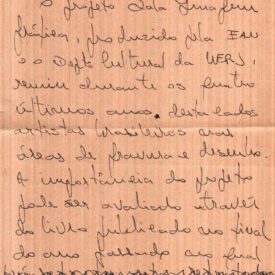 O projeto Sala Imagem
Gráfica, produzido pela EAV
e o Dept Cultural da UERJ,
reuniu durante os quatro
últimos anos, destacados
artistas brasileiros nas
áreas de gravura e desenho.
A importância do projeto
pode ser avaliado através
do livro publicado no final
do ano passado no qual